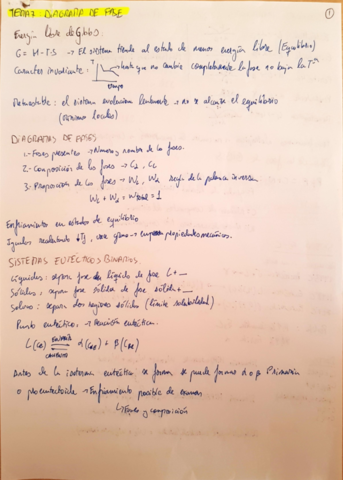 TEMA 7 DIAGRAMA DE FASE
1
Energía libre de Gibbs.
G = H - T·S → El sistema tiende al estado de menor energía libre (Equilibrio)
Carácter invariante: T hasta que no cambie completamente la fase no baja la Tª
tiempo
Metaestable: el sistema evoluciona lentamente → no se alcanza el equilibrio
(mínimo local)
DIAGRAMAS DE FASES
1- Fases presentes → Número y nombre de las fases.
2- Composición de las fases → Cα, CL
3- Proporción de las fases → WL, Wα regla de la palanca inversa
WL + Wα = Wtotal = 1
Enfriamiento en estados de equilibrio
propiedades mecánicas.
SISTEMAS EUTÉCTICOS BINARIOS.
Líquidus: separa fase líquida de fase L + _
Sólidus, separa fase sólida de fase sólida + _
Solvus: separa dos regiones sólidas (límite solubilidad)
Punto eutéctico. → Reacción eutéctica.
L(CE) ⇌ α(CαE) + β(CβE)
Antes de la isoterma eutéctica se forma se puede formar α o β Primaria
o proeutectoide → Enfriamiento posible de
↳ Fases y composición